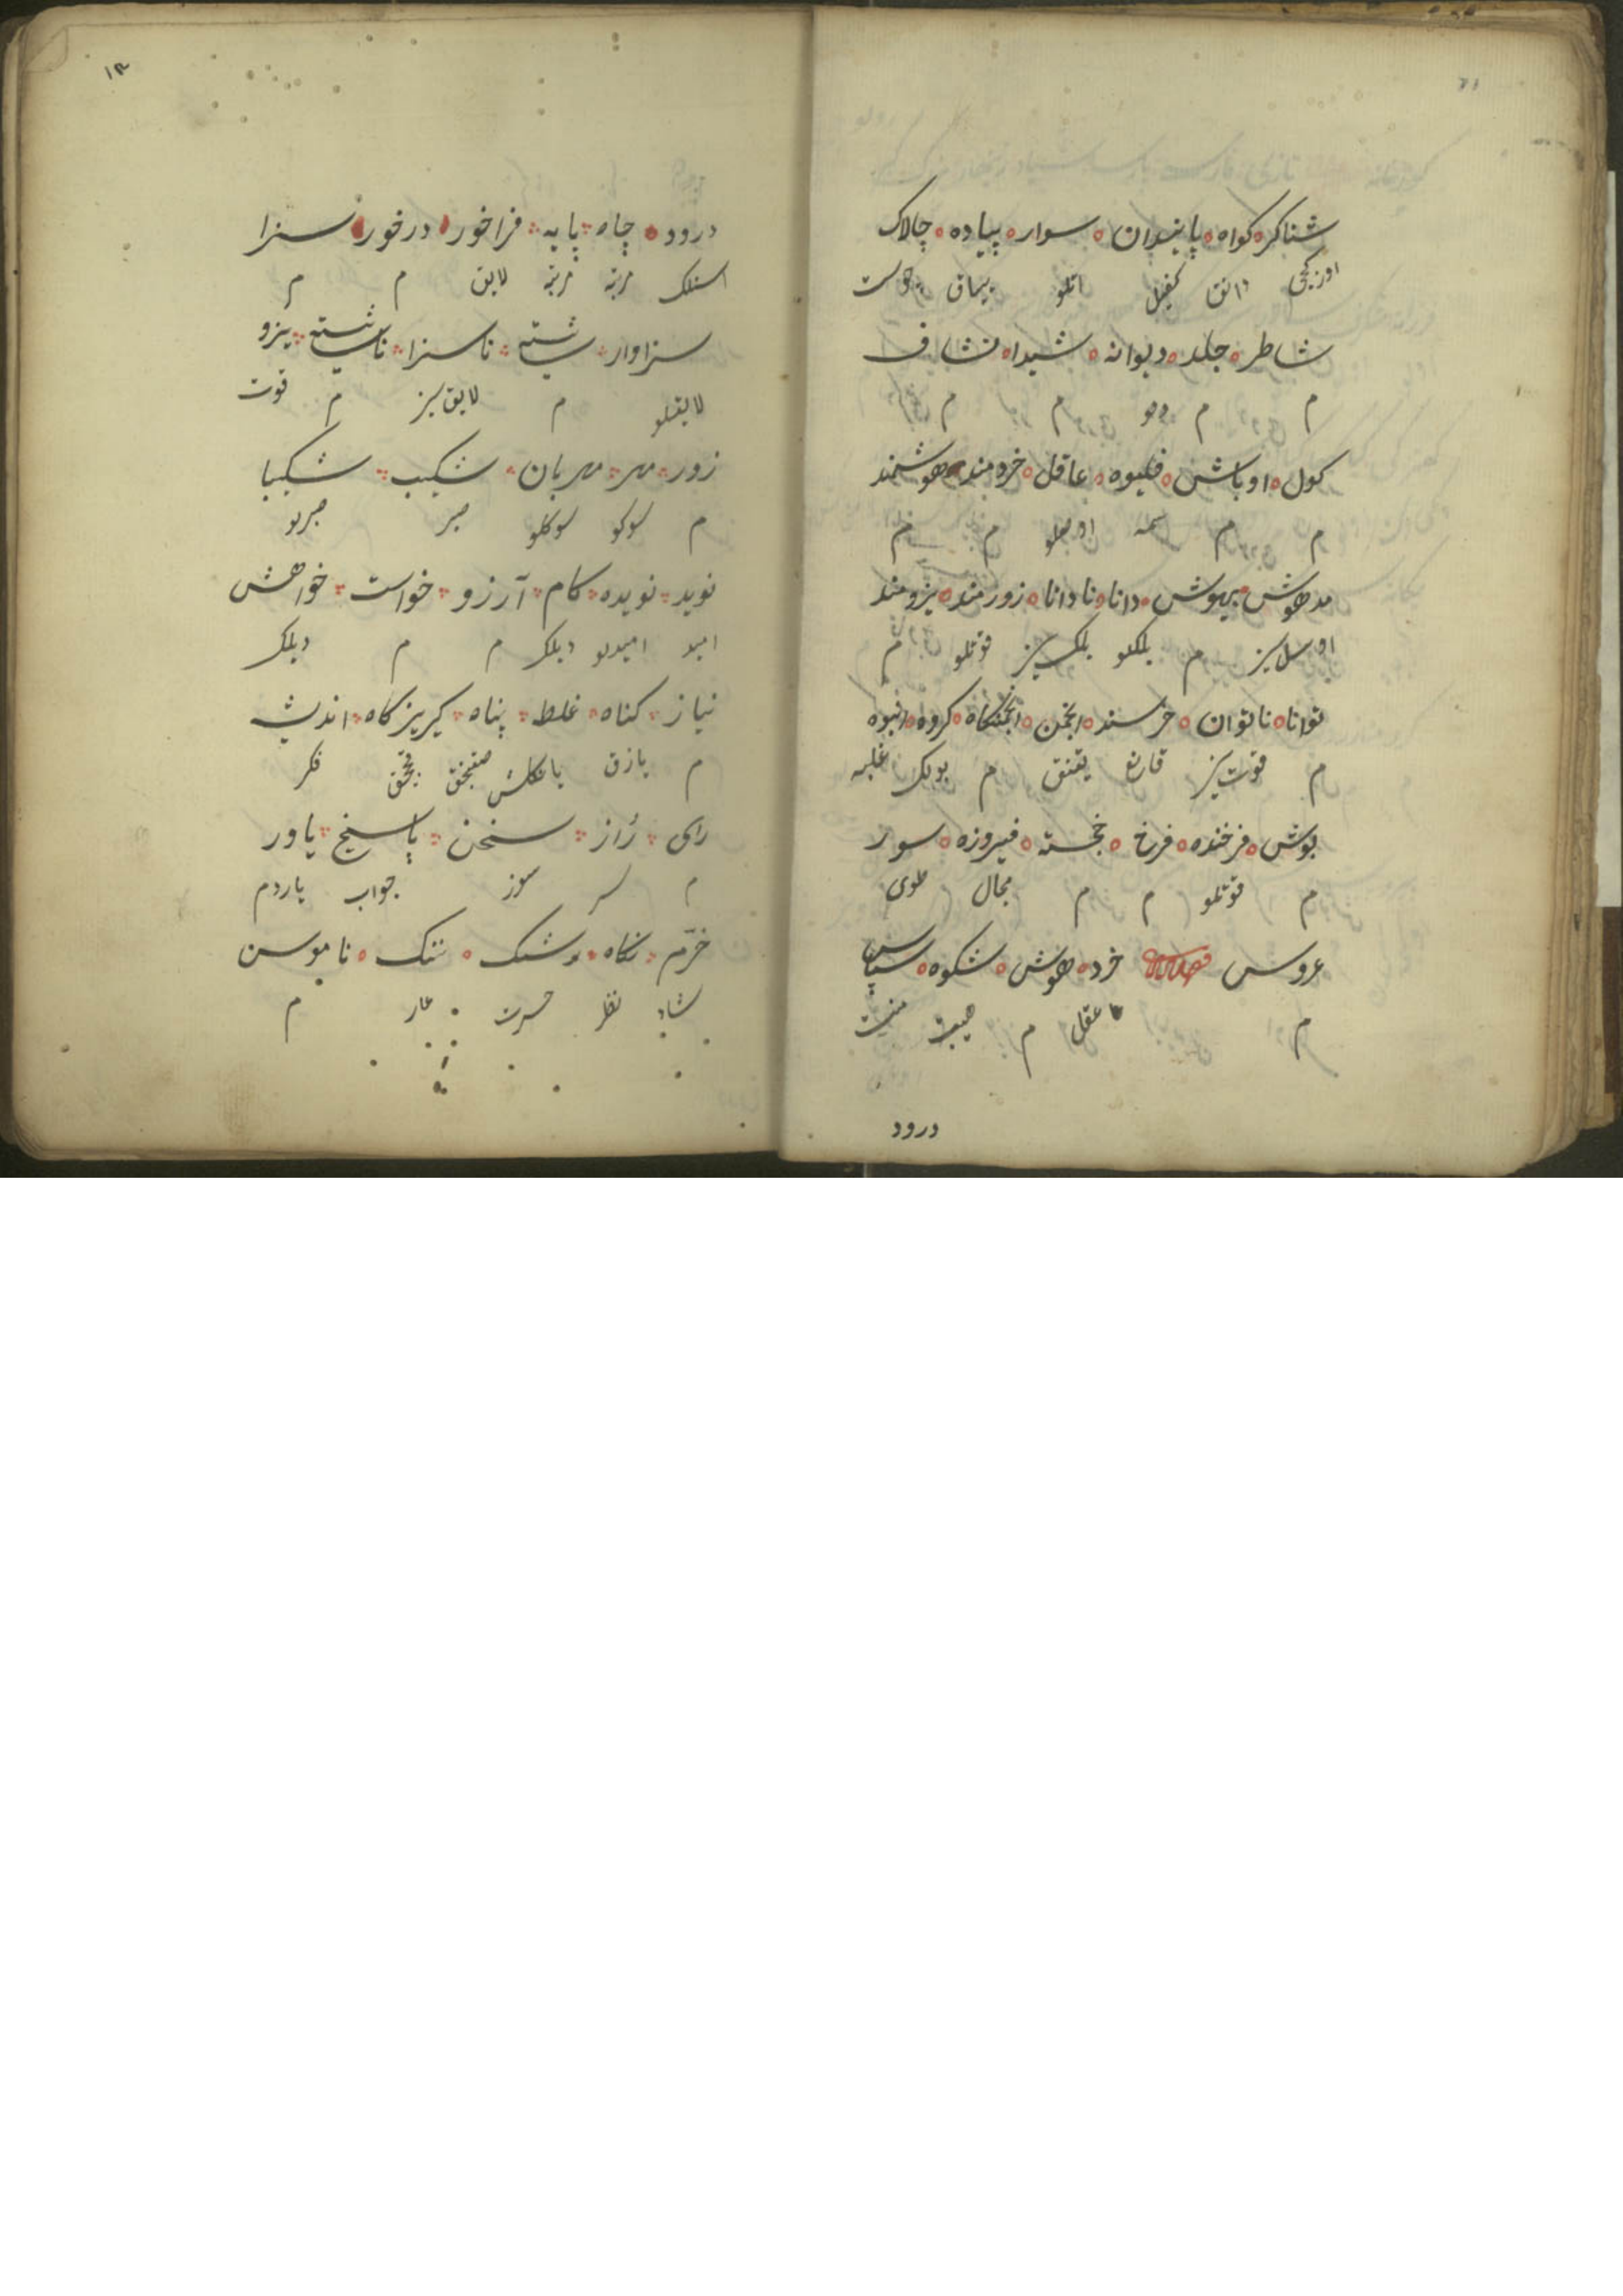 شناکر کواه پایندان سوار پیاده چالاک
اوزکجی دانق کفیل اتلو ییاق چوست
شاطر جلد دیوانه شیدا نشاف
م م دلو م م
کول اوباش فلیوه عاقل خردمند هوشمند
م م سمه اوصلو م م
مدهوش بیهوش دانا نادانا زورمند نیرومند
اوسلسیز م بلکلو بلکسیز قوتلو م
توانا ناتوان خرسند انجمن انجمنکاه کروه انبوه
م قوتسیز قارغ یغنق م بولک غلبه
بوش فرخنده فرخ خجسته فیروزه سور
م قوتلو م م مجال طوی
عروس خرد هوش شکوه سپاس
م عقل م هیبت منت
درود
۱۳
درود جاه پایه فراخور درخور سزا
اسنلک مرتبه مرتبه لایق م م
سزاوار شایسته ناسزا ناشایسته نیرو
لایقلو م لایق سیز م قوت
زور مهر مهربان شکیب شکیبا
م سوکو سوکلو صبر صبرلو
نوید نویده کام آرزو خواست خواهش
امید امیدلو دیلک م م دیلک
نیاز کناه غلط پناه کریزکاه اندیشه
م یازق یاکلش صغنجق قچجق فکر
رای راز سخن پاسخ یاور
م سر سوز جواب یاردم
خرّم نکاه رشک ننک ناموس
شاد نظر حسرت عار م